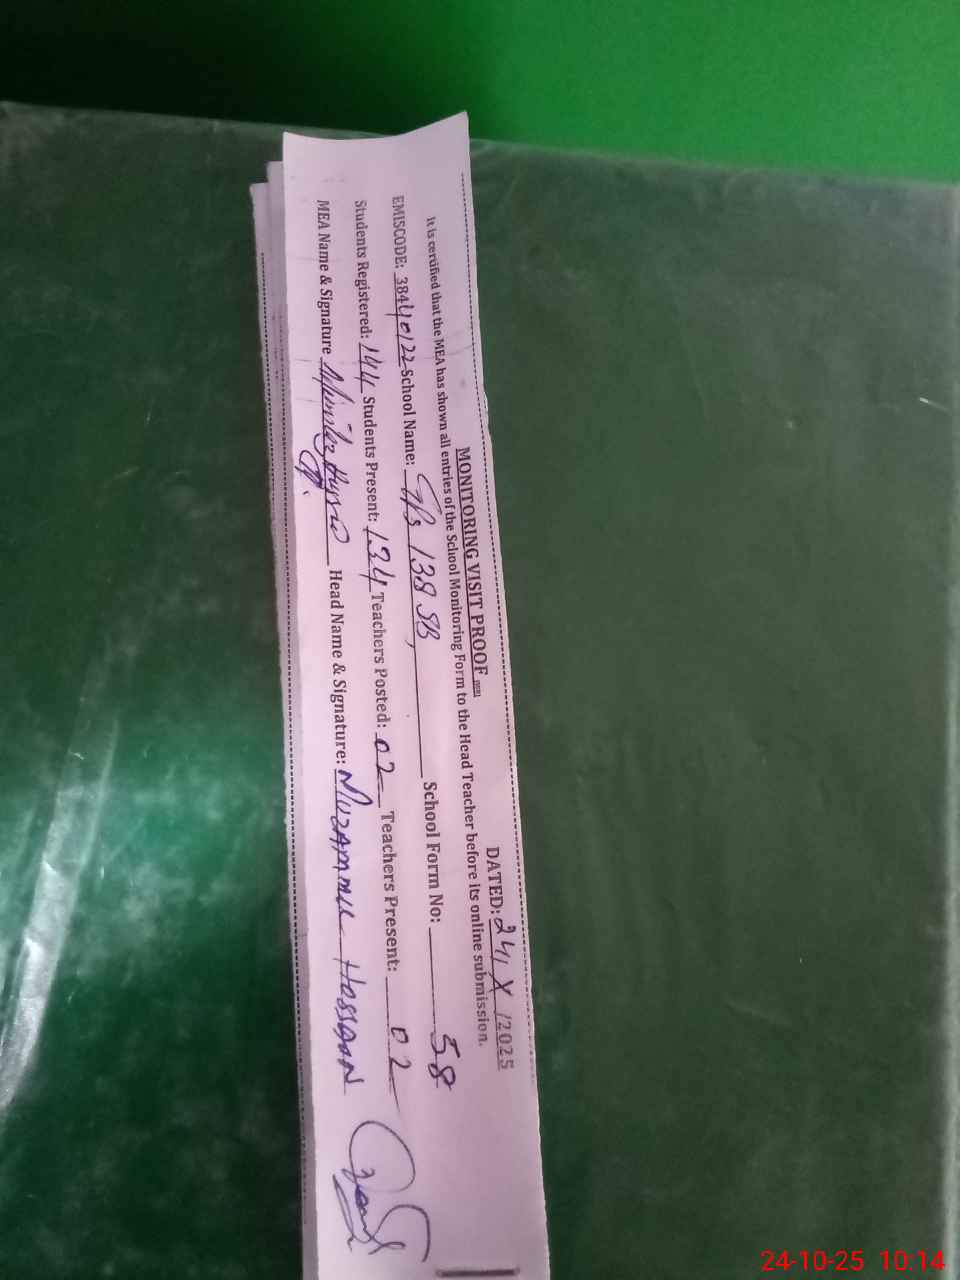 MONITORING VISIT PROOF DATED: 24/ X /2025
It is certified that the MEA has shown all entries of the School Monitoring Form to the Head Teacher before its online submission.
EMISCODE: 38440122 School Name: GPS 138 SB, School Form No: 58
Students Registered: 144 Students Present: 134 Teachers Posted: 02 Teachers Present: 02
MEA Name & Signature Head Name & Signature: MUZAMMIL HASSAAN
24-10-25 10:14